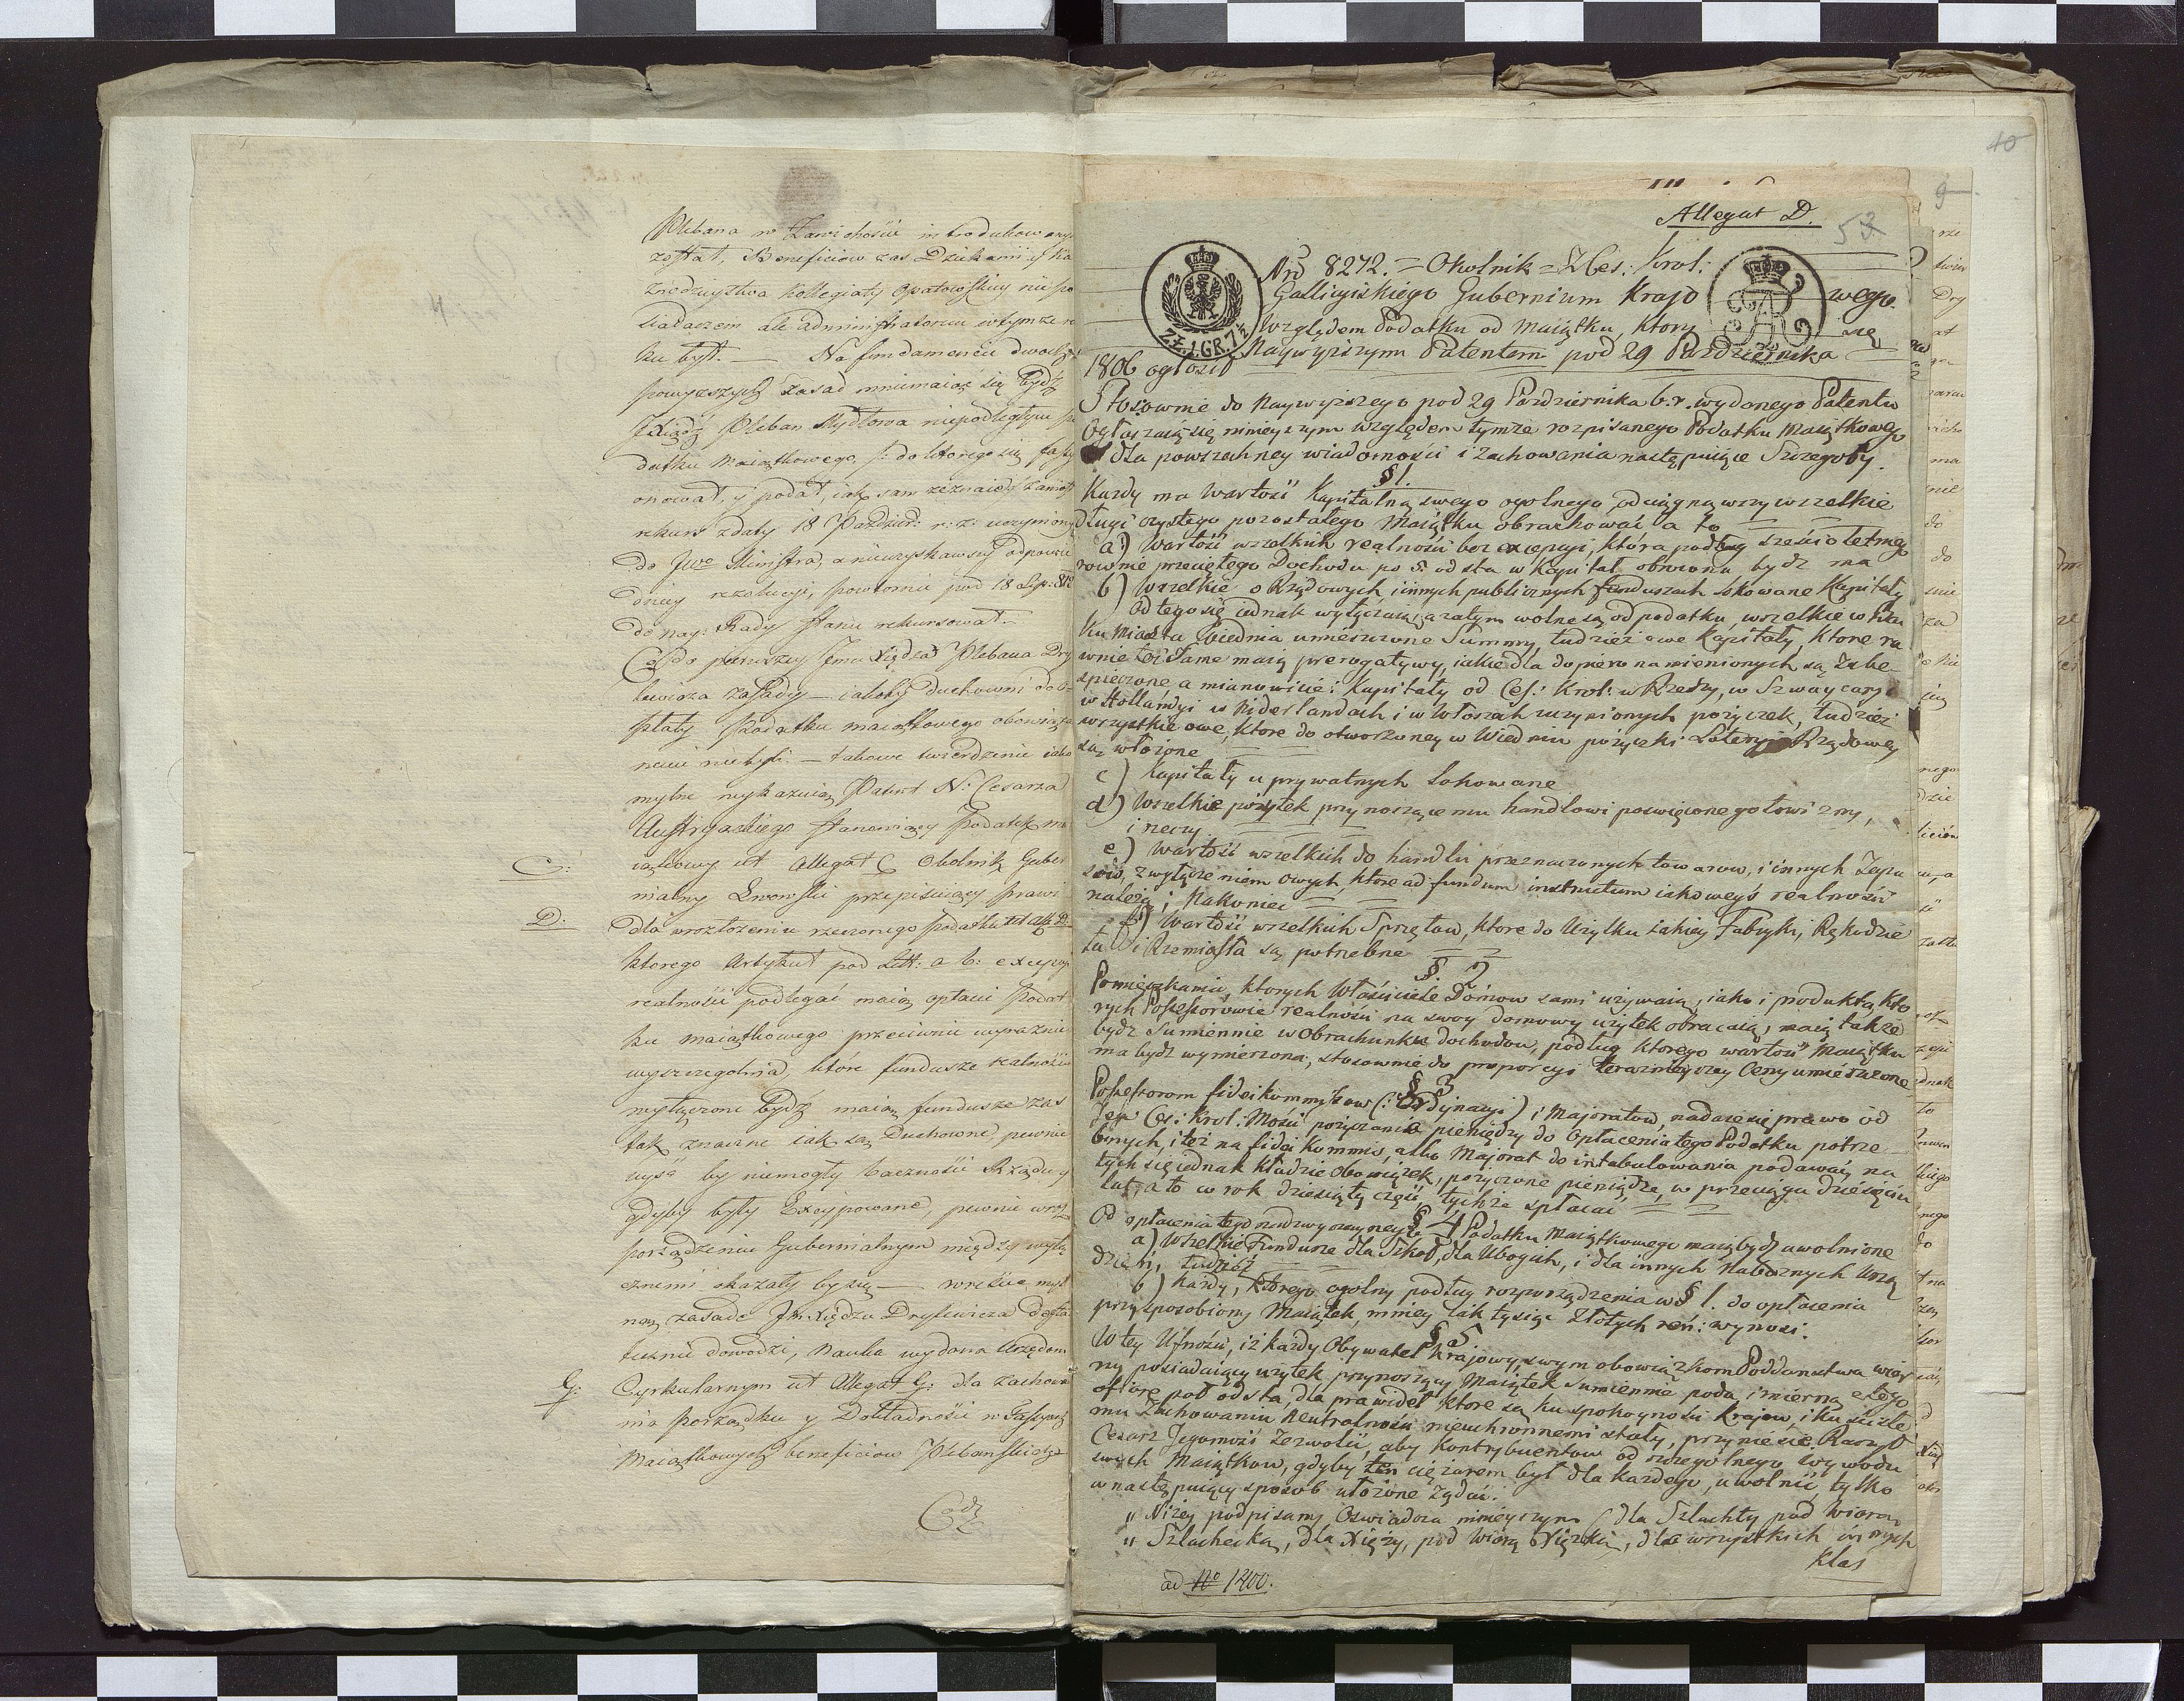 Plebana w Zawichoście introdukowany
został, Beneficiow zas Dziekanii y Ka
Kollegiaty Opatowskiey nie po
siadaczem ale administratorem w tymze ro
ku był. — Na fundamencie dwoch
powyzszych zasad mniemaiąc się bydź
Xiądz Pleban Mydłowa niepodległym po
datku Maiątkowego, do ktorego się fassy
onował, y podał, iak sam zeznaie
rekurs z daty 18 Paździer: r: z: uczyniony
do JWo Ministra, a nieuzyskawszy odpowie
dniey rezolucyi, powtornie pod 18
do nay: Rady Stanu rekursował.
Co do pierwszey Jmci Xiędza Plebana Dry
lewicza zasady — iakoby Duchowni do o=
płaty Podatku maiątkowego obowiąza
nemi niebyli — takowe twierdzenie iako
mylne wykazuią Patent N: Cesarza
Austryackiego stanowiący Podatek ma
C: iątkowy ut Allegat C Okolnik Guber
nialny Lwowski przepisuiący prawi
D: dła wzłożenia rzeczonego podatku ut Alg D.
ktorego Artykuł pod Litt: a b: excypuy
realności podlegać maią opłacie Podat
ku maiątkowego przeciwnie wyraźnie
wyszczegolnia, które fundusze realności
wyłączone bydź maią fundusze zas
tak znaczne iak są Duchowne, pewnie
uyść by niemogły baczności Rządu y
gdyby były Excypowane, pewnie w roz
porządzeniu Gubernialnym między wyłą
cznemi okazały by się — wreście myl
ną zasadę Jm Xiędza Drylewicza dosta
tecznie dowodzi, Nauka wydana Urzędom
G: Cyrkularnym ut Allegat G: dla zachowa
nia porządku y Dokładności w Fassyach
Maiątkowych beneficiow Plebańskich
Gdź
40
9
Allegat D.
53
Nro 8272. = Okolnik = Z Ces: Krol:
Gallicyiskiego Gubernium Krajo wego.
Względem Podatku od Maiątku, ktory się
Naywyższym Patentem pod 29 Października
1806 ogłosił
ZŁ.1.GR.7½
Stosownie do Naywyższego pod 29 Października b.r. wydanego Patentu
Ogłaszaią się ninieyszym względem tymze rozpisanego Podatku Maiątkowego
dla powszechney wiadomosci i zachowania następuiące Szczegoły.
§ 1.
Kazdy ma Wartość Kapitalną swego ogolnego, odciągnąwszy wszelkie
długi czystego pozostałego Maiątku obrachować a to
a) Wartość wszelkich realności bez excepcyi, która podług sześcioletniego
rownie przeciętego Dochodu po 5. od sta w Kapitał obrocona bydz ma
b) Wszelkie o Rządowych i innych publicznych funduszach lokowane Kapitały
Od tego się iednak wyłączaią, a zatym wolne są od podatku, wszelkie w Ban
ku Miasta Wiednia umieszczone Summy, tudzież owe Kapitały, ktore ro
wnie też same maią prerogatywy, iakie dla dopiero namienionych są zabe
spieczone a mianowicie: Kapitały od Ces: Krol: w Rzeszy, w Szwaycaryi
w Hollandyi w Niderlandach i w Włoszech uczynionych pożyczek, tudzież
wszystkie owe, ktore do otworzoney w Wiedniu pożyczki Loteryi Rządowey
są włożone
c) Kapitały u prywatnych lokowane
d) Wszelkie pożytek przynoszące mu handlowi poswięcone gotowizny,
i rzeczy
e) Wartość wszelkich do handlu przeznaczonych towarow, i innych Zapa
sow, z wyłączeniem owych, ktore ad fundum instructum iakoweyś realności
należą; Nakoniec
f) Wartość wszelkich Sprzętow, ktore do Użytku takiey Fabryki, Rękodzie
ła i Rzemiosła są potrzebne
§. 2
Pomieszkania, ktorych Właściciele Domow sami używaią, iako i produkta, kto
rych Possessorowie realności na swoy domowy użytek obracaią, maią także
bydz Sumiennie w Obrachunku dochodow, podług ktorego wartość Maiątku
ma bydź wymierzona, stosownie do proporcyi teraznieyszey Ceny umieszczone
§ 3
Possessorom fideikommissow (: Ordynacyi) i Majoratow, nadaie się prawo od
Jego Ces: Krol: Mości pożyczania pieniędzy do Opłacenia tego Podatku potrze
bnych, i też na fidei Kommis, albo Majorat do intabulowania podawać, na
tych się iednak kładzie Obowiązek, pożyczone pieniądze, w przeciągu dziesięciu
lat, a to w rok dziesiątą część tychże spłacać
§ 4
Od opłacenia tego nadzwyczaynego Podatku Maiątkowego maią bydź uwolnione
a) Wszelkie Fundusze dla Szkoł, dla Ubogich, i dla innych Nabożnych Urzą
dzeń, tudzież
b) Każdy, ktorego ogolny podług rozporządzenia w § 1. do opłacenia
przysposobiony Maiątek, mniey iak tysiąc Złotych reń: wynosi.
§ 5
W tey Ufności, iż każdy Obywatel Krajowy, swym obowiązkom Poddaństwa wier
ny posiadaiący użytek przynoszący Maiątek sumiennie poda, i mierną z tego
ofiarę poł od sta, dla prawideł ktore są ku spokoyności Krajow, i ku ściśle
mu Zachowaniu Neutralności nieuchronnemi stały, przyniesie Raczył
Cesarz Jegomość Zezwolić, aby Kontrybuentow od szczegolnego Wywodu
swych Maiątkow, gdyby ten ciężarem był dla każdego, uwolnić, tylko
w następuiący sposob ułożone żądać:
„ Niżey podpisany Oswiadcza ninieyszym (dla Szlachty pod Wiarą
„ Szlachecką, dla Xięży, pod Wiarą Xięzką, dla wszystkich innych
klas
ad No 1400.